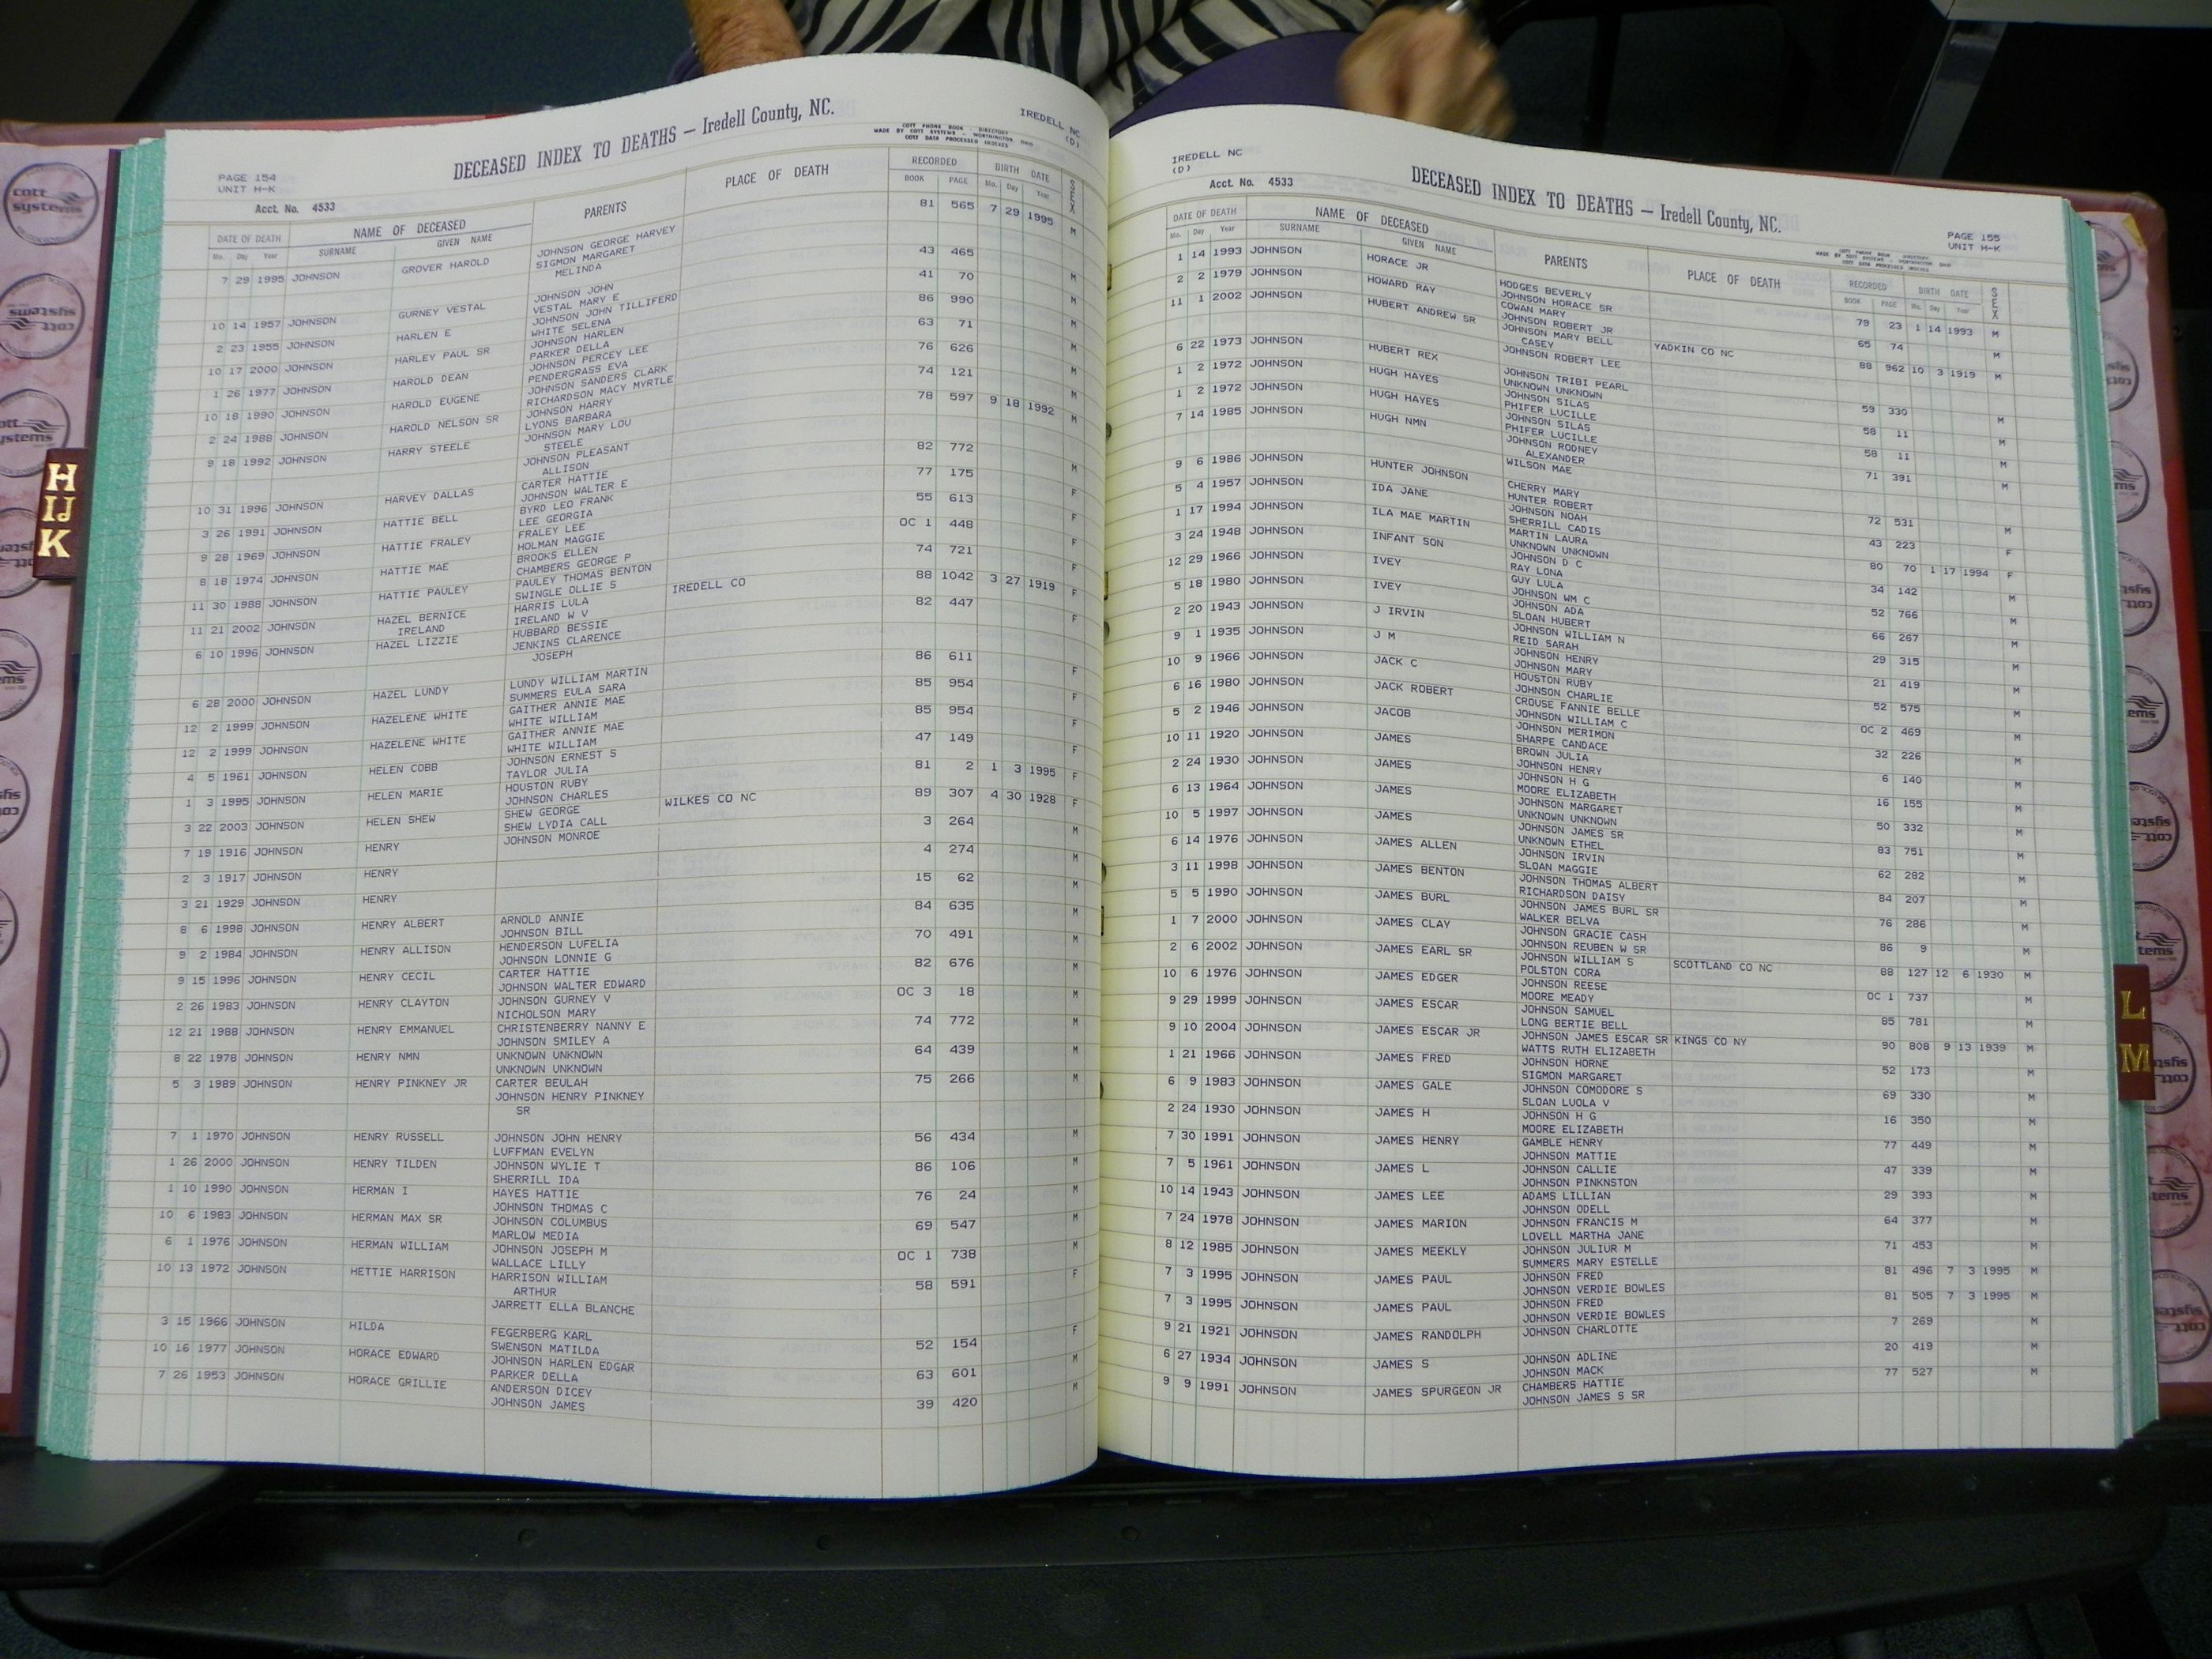 DECEASED INDEX TO DEATHS — Iredell County, NC.
IREDELL NC
(D)
COTT PHONE BOOK - DIRECTORY
MADE BY COTT SYSTEMS - WORTHINGTON, OHIO
COTT DATA PROCESSED INDEXES
PAGE 154
UNIT H-K
Acct. No. 4533
DATE OF DEATH NAME OF DECEASED PARENTS PLACE OF DEATH RECORDED BIRTH DATE SEX
Mo. Day Year SURNAME GIVEN NAME BOOK PAGE Mo. Day Year
7 29 1995 JOHNSON GROVER HAROLD JOHNSON GEORGE HARVEY 81 565 7 29 1995 M
SIGMON MARGARET
MELINDA
10 14 1957 JOHNSON GURNEY VESTAL JOHNSON JOHN 43 465 M
VESTAL MARY E
2 23 1955 JOHNSON HARLEN E JOHNSON JOHN TILLIFERD 41 70 M
WHITE SELENA
10 17 2000 JOHNSON HARLEY PAUL SR JOHNSON HARLEN 86 990 M
PARKER DELLA
1 26 1977 JOHNSON HAROLD DEAN JOHNSON PERCEY LEE 63 71 M
PENDERGRASS EVA
10 18 1990 JOHNSON HAROLD EUGENE JOHNSON SANDERS CLARK 76 626 M
RICHARDSON MACY MYRTLE
2 24 1988 JOHNSON HAROLD NELSON SR JOHNSON HARRY 74 121 M
LYONS BARBARA
9 18 1992 JOHNSON HARRY STEELE JOHNSON MARY LOU 78 597 9 18 1992 M
STEELE
JOHNSON PLEASANT
ALLISON
10 31 1996 JOHNSON HARVEY DALLAS CARTER HATTIE 82 772 M
JOHNSON WALTER E
3 26 1991 JOHNSON HATTIE BELL BYRD LEO FRANK 77 175 F
LEE GEORGIA
9 28 1969 JOHNSON HATTIE FRALEY FRALEY LEE 55 613 F
HOLMAN MAGGIE
8 18 1974 JOHNSON HATTIE MAE BROOKS ELLEN OC 1 448 F
CHAMBERS GEORGE P
11 30 1988 JOHNSON HATTIE PAULEY PAULEY THOMAS BENTON 74 721 F
SWINGLE OLLIE S
11 21 2002 JOHNSON HAZEL BERNICE HARRIS LULA IREDELL CO 88 1042 3 27 1919 F
IRELAND IRELAND W V
6 10 1996 JOHNSON HAZEL LIZZIE HUBBARD BESSIE 82 447 F
JENKINS CLARENCE
JOSEPH
6 28 2000 JOHNSON HAZEL LUNDY LUNDY WILLIAM MARTIN 86 611 F
SUMMERS EULA SARA
12 2 1999 JOHNSON HAZELENE WHITE GAITHER ANNIE MAE 85 954 F
WHITE WILLIAM
12 2 1999 JOHNSON HAZELENE WHITE GAITHER ANNIE MAE 85 954 F
WHITE WILLIAM
4 5 1961 JOHNSON HELEN COBB JOHNSON ERNEST S 47 149 F
TAYLOR JULIA
1 3 1995 JOHNSON HELEN MARIE HOUSTON RUBY 81 2 1 3 1995 F
JOHNSON CHARLES
3 22 2003 JOHNSON HELEN SHEW SHEW GEORGE WILKES CO NC 89 307 4 30 1928 F
SHEW LYDIA CALL
7 19 1916 JOHNSON HENRY JOHNSON MONROE 3 264 M
2 3 1917 JOHNSON HENRY 4 274 M
3 21 1929 JOHNSON HENRY 15 62 M
8 6 1998 JOHNSON HENRY ALBERT ARNOLD ANNIE 84 635 M
JOHNSON BILL
9 2 1984 JOHNSON HENRY ALLISON HENDERSON LUFELIA 70 491 M
JOHNSON LONNIE G
9 15 1996 JOHNSON HENRY CECIL CARTER HATTIE 82 676 M
JOHNSON WALTER EDWARD
2 26 1983 JOHNSON HENRY CLAYTON JOHNSON GURNEY V OC 3 18 M
NICHOLSON MARY
12 21 1988 JOHNSON HENRY EMMANUEL CHRISTENBERRY NANNY E 74 772 M
JOHNSON SMILEY A
8 22 1978 JOHNSON HENRY NMN UNKNOWN UNKNOWN 64 439 M
UNKNOWN UNKNOWN
5 3 1989 JOHNSON HENRY PINKNEY JR CARTER BEULAH 75 266 M
JOHNSON HENRY PINKNEY
SR
7 1 1970 JOHNSON HENRY RUSSELL JOHNSON JOHN HENRY 56 434 M
LUFFMAN EVELYN
1 26 2000 JOHNSON HENRY TILDEN JOHNSON WYLIE T 86 106 M
SHERRILL IDA
1 10 1990 JOHNSON HERMAN I HAYES HATTIE 76 24 M
JOHNSON THOMAS C
10 6 1983 JOHNSON HERMAN MAX SR JOHNSON COLUMBUS 69 547 M
MARLOW MEDIA
6 1 1976 JOHNSON HERMAN WILLIAM JOHNSON JOSEPH M OC 1 738 M
WALLACE LILLY
10 13 1972 JOHNSON HETTIE HARRISON HARRISON WILLIAM 58 591 F
ARTHUR
JARRETT ELLA BLANCHE
3 15 1966 JOHNSON HILDA FEGERBERG KARL 52 154 F
SWENSON MATILDA
10 16 1977 JOHNSON HORACE EDWARD JOHNSON HARLEN EDGAR 63 601 M
PARKER DELLA
7 26 1953 JOHNSON HORACE GRILLIE ANDERSON DICEY 39 420 M
JOHNSON JAMES
IREDELL NC
(D)
Acct. No. 4533
DECEASED INDEX TO DEATHS — Iredell County, NC.
PAGE 155
UNIT H-K
DATE OF DEATH NAME OF DECEASED PARENTS PLACE OF DEATH RECORDED BIRTH DATE SEX
Mo. Day Year SURNAME GIVEN NAME BOOK PAGE Mo. Day Year
1 14 1993 JOHNSON HORACE JR HODGES BEVERLY 79 23 1 14 1993 M
JOHNSON HORACE SR
2 2 1979 JOHNSON HOWARD RAY COWAN MARY YADKIN CO NC 65 74 M
JOHNSON ROBERT JR
11 1 2002 JOHNSON HUBERT ANDREW SR JOHNSON MARY BELL 88 962 10 3 1919 M
CASEY
JOHNSON ROBERT LEE
6 22 1973 JOHNSON HUBERT REX JOHNSON TRIBI PEARL 59 330 M
UNKNOWN UNKNOWN
1 2 1972 JOHNSON HUGH HAYES JOHNSON SILAS 58 11 M
PHIFER LUCILLE
1 2 1972 JOHNSON HUGH HAYES JOHNSON SILAS 58 11 M
PHIFER LUCILLE
7 14 1985 JOHNSON HUGH NMN JOHNSON RODNEY 71 391 M
ALEXANDER
WILSON MAE
9 6 1986 JOHNSON HUNTER JOHNSON CHERRY MARY 72 531 M
HUNTER ROBERT
5 4 1957 JOHNSON IDA JANE JOHNSON NOAH 43 223 F
SHERRILL CADIS
1 17 1994 JOHNSON ILA MAE MARTIN MARTIN LAURA 80 70 1 17 1994 F
UNKNOWN UNKNOWN
3 24 1948 JOHNSON INFANT SON JOHNSON D C 34 142 M
RAY LONA
12 29 1966 JOHNSON IVEY GUY LULA 52 766 M
JOHNSON WM C
5 18 1980 JOHNSON IVEY JOHNSON ADA 66 267 M
SLOAN HUBERT
2 20 1943 JOHNSON J IRVIN JOHNSON WILLIAM N 29 315 M
REID SARAH
9 1 1935 JOHNSON J M JOHNSON HENRY 21 419 M
JOHNSON MARY
10 9 1966 JOHNSON JACK C HOUSTON RUBY 52 575 M
JOHNSON CHARLIE
6 16 1980 JOHNSON JACK ROBERT CROUSE FANNIE BELLE OC 2 469 M
JOHNSON WILLIAM C
5 2 1946 JOHNSON JACOB JOHNSON MERIMON 32 226 M
SHARPE CANDACE
10 11 1920 JOHNSON JAMES BROWN JULIA 6 140 M
JOHNSON HENRY
2 24 1930 JOHNSON JAMES JOHNSON H G 16 155 M
MOORE ELIZABETH
6 13 1964 JOHNSON JAMES JOHNSON MARGARET 50 332 M
UNKNOWN UNKNOWN
10 5 1997 JOHNSON JAMES JOHNSON JAMES SR 83 751 M
UNKNOWN ETHEL
6 14 1976 JOHNSON JAMES ALLEN JOHNSON IRVIN 62 282 M
SLOAN MAGGIE
3 11 1998 JOHNSON JAMES BENTON JOHNSON THOMAS ALBERT 84 207 M
RICHARDSON DAISY
5 5 1990 JOHNSON JAMES BURL JOHNSON JAMES BURL SR 76 286 M
WALKER BELVA
1 7 2000 JOHNSON JAMES CLAY JOHNSON GRACIE CASH 86 9 M
JOHNSON REUBEN W SR
2 6 2002 JOHNSON JAMES EARL SR JOHNSON WILLIAM S SCOTTLAND CO NC 88 127 12 6 1930 M
POLSTON CORA
10 6 1976 JOHNSON JAMES EDGER JOHNSON REESE OC 1 737 M
MOORE MEADY
9 29 1999 JOHNSON JAMES ESCAR JOHNSON SAMUEL 85 781 M
LONG BERTIE BELL
9 10 2004 JOHNSON JAMES ESCAR JR JOHNSON JAMES ESCAR SR KINGS CO NY 90 808 9 13 1939 M
WATTS RUTH ELIZABETH
1 21 1966 JOHNSON JAMES FRED JOHNSON HORNE 52 173 M
SIGMON MARGARET
6 9 1983 JOHNSON JAMES GALE JOHNSON COMODORE S 69 330 M
SLOAN LUOLA V
2 24 1930 JOHNSON JAMES H JOHNSON H G 16 350 M
MOORE ELIZABETH
7 30 1991 JOHNSON JAMES HENRY GAMBLE HENRY 77 449 M
JOHNSON MATTIE
7 5 1961 JOHNSON JAMES L JOHNSON CALLIE 47 339 M
JOHNSON PINKNSTON
10 14 1943 JOHNSON JAMES LEE ADAMS LILLIAN 29 393 M
JOHNSON ODELL
7 24 1978 JOHNSON JAMES MARION JOHNSON FRANCIS M 64 377 M
LOVELL MARTHA JANE
8 12 1985 JOHNSON JAMES MEEKLY JOHNSON JULIUR M 71 453 M
SUMMERS MARY ESTELLE
7 3 1995 JOHNSON JAMES PAUL JOHNSON FRED 81 496 7 3 1995 M
JOHNSON VERDIE BOWLES
7 3 1995 JOHNSON JAMES PAUL JOHNSON FRED 81 505 7 3 1995 M
JOHNSON VERDIE BOWLES
9 21 1921 JOHNSON JAMES RANDOLPH JOHNSON CHARLOTTE 7 269 M
6 27 1934 JOHNSON JAMES S JOHNSON ADLINE 20 419 M
JOHNSON MACK
9 9 1991 JOHNSON JAMES SPURGEON JR CHAMBERS HATTIE 77 527 M
JOHNSON JAMES S SR
H
IJ
K
L
M
cott
systems